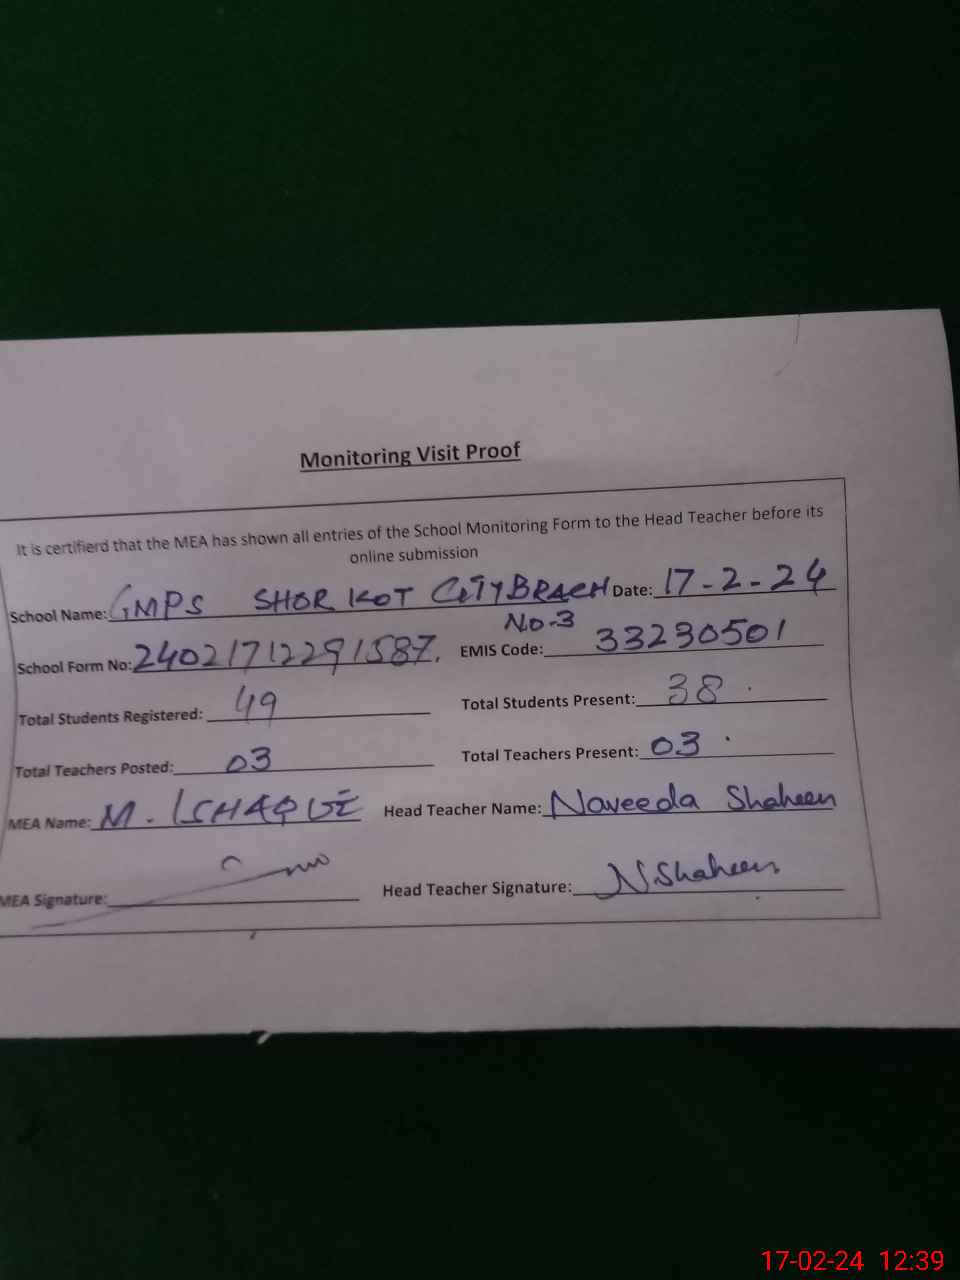 Monitoring Visit Proof
It is certifierd that the MEA has shown all entries of the School Monitoring Form to the Head Teacher before its
online submission
School Name: GMPS SHOR KOT CITY BRACH Date: 17-2-24
No-3
School Form No: 240217122291587. EMIS Code: 33230501
Total Students Registered: 49 Total Students Present: 38
Total Teachers Posted: 03 Total Teachers Present: 03
MEA Name: M. ISHAQUE Head Teacher Name: Naveeda Shaheen
MEA Signature: Head Teacher Signature: N.Shaheen
17-02-24 12:39